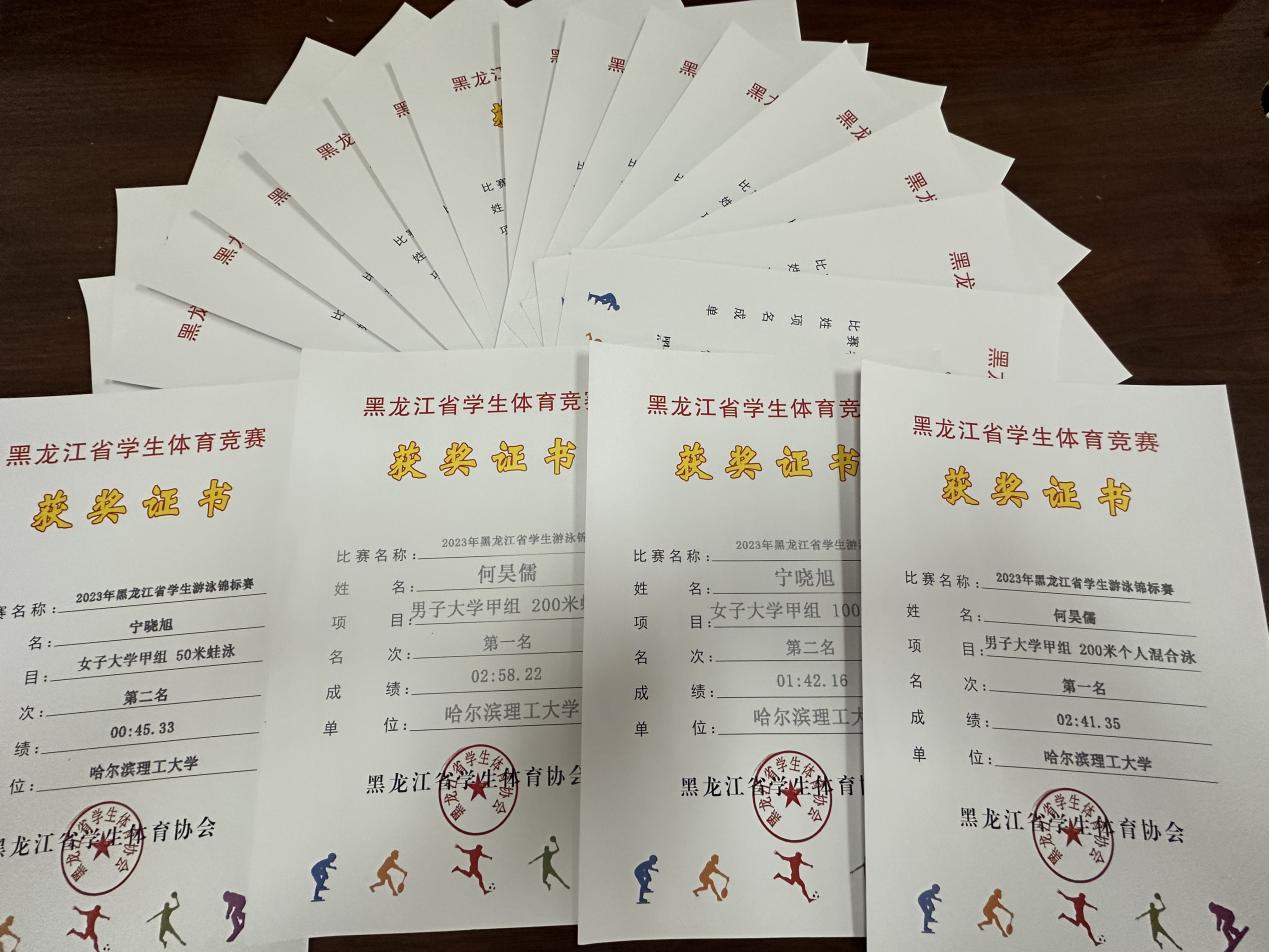 黑龙江
黑
黑龙
黑
黑
黑龙
黑
黑
黑
黑龙
黑龙
黑龙
黑龙
黑龙
比赛
姓
比
姓
比
姓
比赛
姓
项
名
成
单
黑龙江省学生体育竞赛
获奖证书
赛名称：2023年黑龙江省学生游泳锦标赛
名：宁晓旭
目：女子大学甲组 50米蛙泳
次：第二名
绩：00:45.33
位：哈尔滨理工大学
黑龙江省学生体育协会
黑龙江省学生体育协会
黑龙江省学生体育竞
获奖证书
比赛名称：2023年黑龙江省学生游泳锦
姓名：何昊儒
项目：男子大学甲组 200米
名次：第一名
成绩：02:58.22
单位：哈尔滨理工大学
黑龙江省学生体育协会
黑龙江省学生体育协会
黑龙江省学生体育竞
获奖证书
比赛名称：2023年黑龙江省学生游
姓名：宁晓旭
项目：女子大学甲组 100
名次：第二名
成绩：01:42.16
单位：哈尔滨理工大
黑龙江省学生体育协
黑龙江省学生体育协会
黑龙江省学生体育竞赛
获奖证书
比赛名称：2023年黑龙江省学生游泳锦标赛
姓名：何昊儒
项目：男子大学甲组 200米个人混合泳
名次：第一名
成绩：02:41.35
单位：哈尔滨理工大学
黑龙江省学生体育协会
黑龙江省学生体育协会